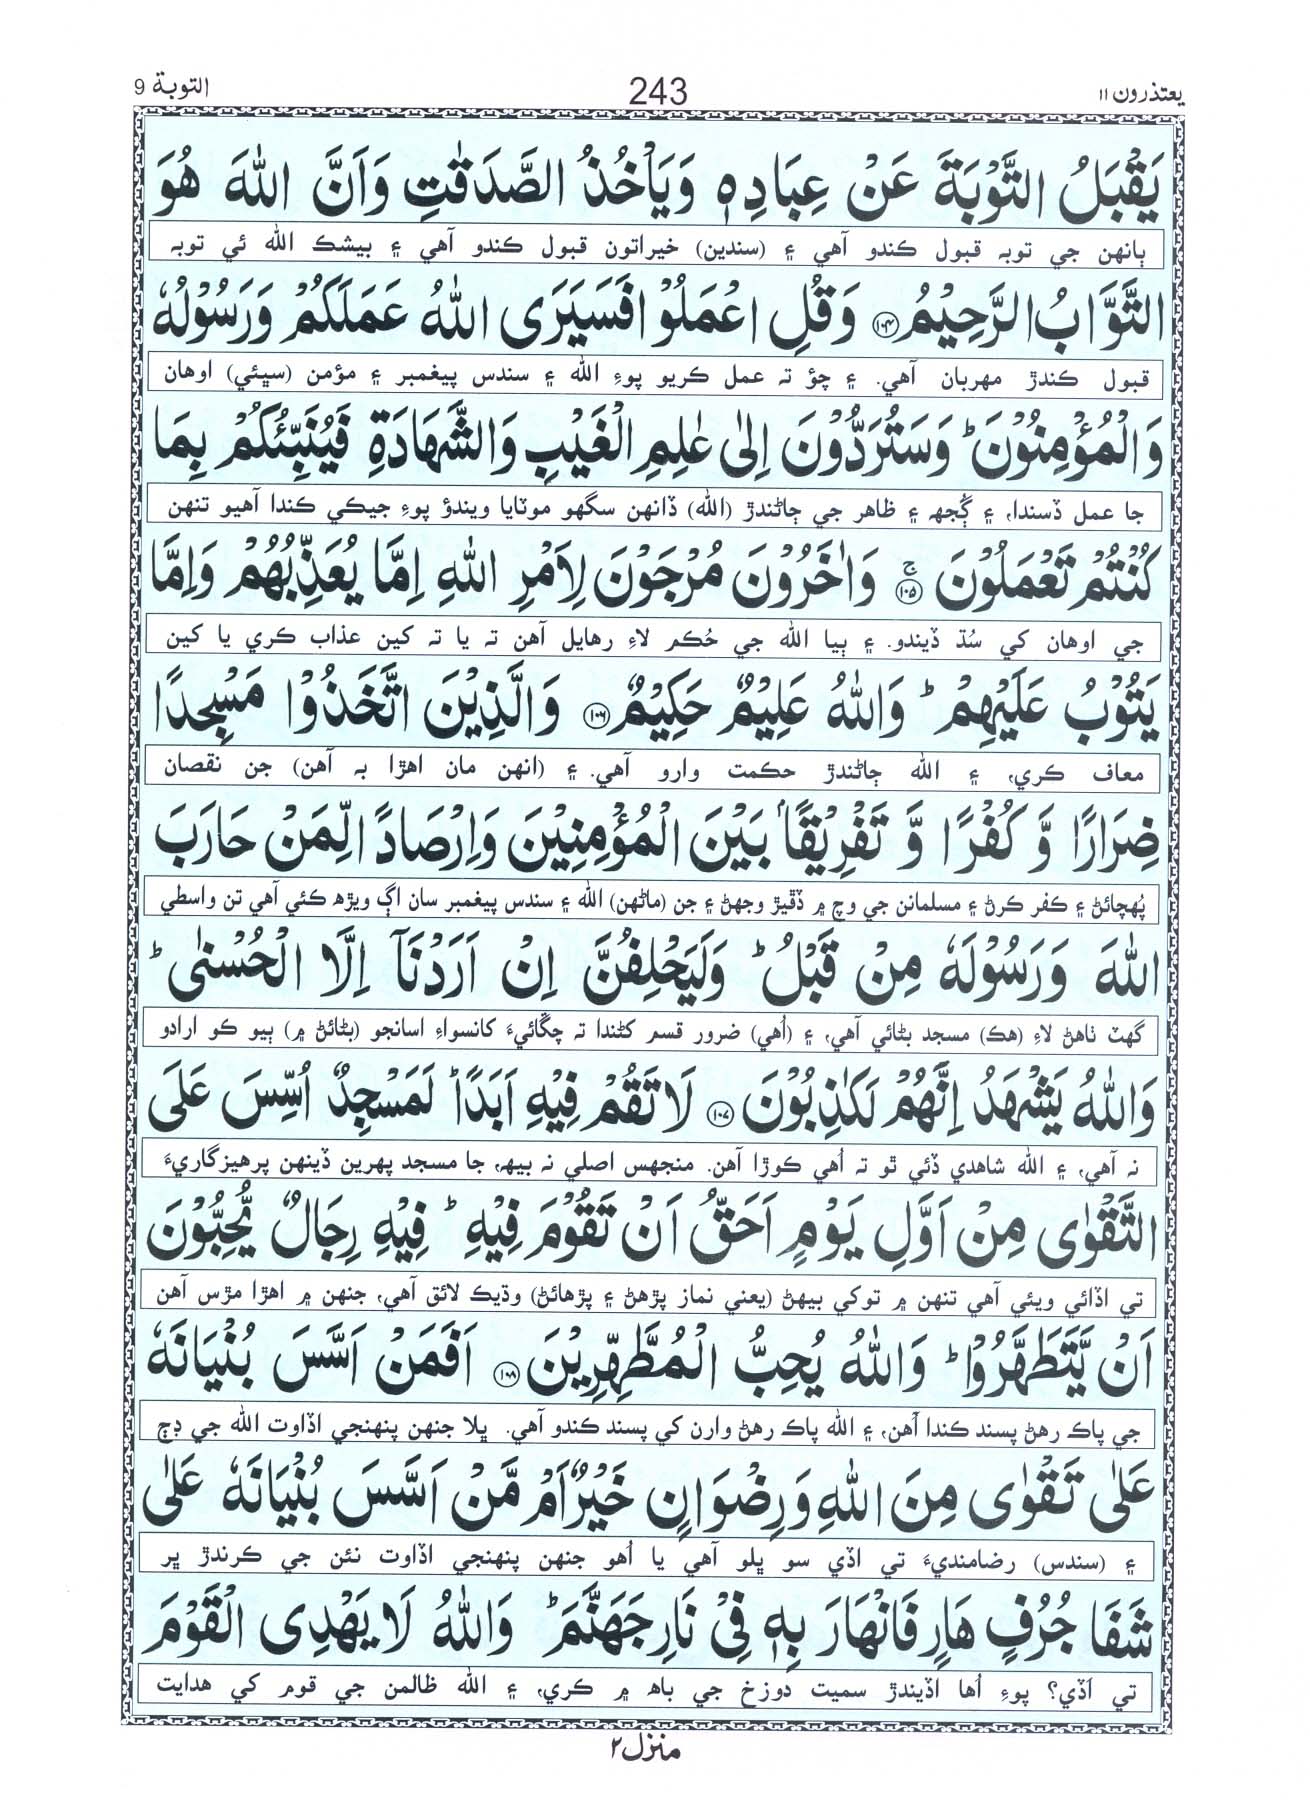 يعتذرون ۱۱
243
التوبة 9
يَقْبَلُ التَّوْبَةَ عَنْ عِبَادِهٖ وَيَاْخُذُ الصَّدَقٰتِ وَاَنَّ اللّٰهَ هُوَ
ٻانهن جي توبہ قبول ڪندو آهي ۽ (سندين) خيراتون قبول ڪندو آهي ۽ بيشڪ الله ئي توبہ
التَّوَّابُ الرَّحِيْمُ ۝۱۰۴ وَقُلِ اعْمَلُوْا فَسَيَرَى اللّٰهُ عَمَلَكُمْ وَرَسُوْلُهٗ
قبول ڪندڙ مهربان آهي. ۽ چؤ تہ عمل ڪريو پوءِ الله ۽ سندس پيغمبر ۽ مؤمن (سڀئي) اوهان
وَالْمُؤْمِنُوْنَ ؕ وَسَتُرَدُّوْنَ اِلٰى عٰلِمِ الْغَيْبِ وَالشَّهَادَةِ فَيُنَبِّئُكُمْ بِمَا
جا عمل ڏسندا، ۽ ڳُجھہ ۽ ظاهر جي ڄاڻندڙ (الله) ڏانهن سگهو موٽايا ويندؤ پوءِ جيڪي ڪندا آهيو تنهن
كُنْتُمْ تَعْمَلُوْنَ ۝۱۰۵ۚ وَاٰخَرُوْنَ مُرْجَوْنَ لِاَمْرِ اللّٰهِ اِمَّا يُعَذِّبُهُمْ وَاِمَّا
جي اوهان کي سُڌ ڏيندو. ۽ ٻيا الله جي حُڪم لاءِ رهايل آهن تہ يا تہ کين عذاب ڪري يا کين
يَتُوْبُ عَلَيْهِمْ ؕ وَاللّٰهُ عَلِيْمٌ حَكِيْمٌ ۝۱۰۶ وَالَّذِيْنَ اتَّخَذُوْا مَسْجِدًا
معاف ڪري، ۽ الله ڄاڻندڙ حڪمت وارو آهي. ۽ (انهن مان اهڙا بہ آهن) جن نقصان
ضِرَارًا وَّ كُفْرًا وَّ تَفْرِيْقًاۢ بَيْنَ الْمُؤْمِنِيْنَ وَاِرْصَادًا لِّمَنْ حَارَبَ
پُهچائڻ ۽ ڪفر ڪرڻ ۽ مسلمانن جي وچ ۾ ڏڦيڙ وجهڻ ۽ جن (ماڻهن) الله ۽ سندس پيغمبر سان اڳ ويڙھہ ڪئي آهي تن واسطي
اللّٰهَ وَرَسُوْلَهٗ مِنْ قَبْلُ ؕ وَلَيَحْلِفُنَّ اِنْ اَرَدْنَاۤ اِلَّا الْحُسْنٰى ؕ
گهٽ ٺاهڻ لاءِ (هڪ) مسجد بڻائي آهي، ۽ (اُهي) ضرور قسم کڻندا تہ چڱائيءَ کانسواءِ اسانجو (بڻائڻ ۾) ٻيو ڪو ارادو
وَاللّٰهُ يَشْهَدُ اِنَّهُمْ لَكٰذِبُوْنَ ۝۱۰۷ لَا تَقُمْ فِيْهِ اَبَدًا ؕ لَمَسْجِدٌ اُسِّسَ عَلَى
نہ آهي، ۽ الله شاهدي ڏئي ٿو تہ اُهي ڪوڙا آهن. منجهس اصلي نہ بيھہ، جا مسجد پهرين ڏينهن پرهيزگاريءَ
التَّقْوٰى مِنْ اَوَّلِ يَوْمٍ اَحَقُّ اَنْ تَقُوْمَ فِيْهِ ؕ فِيْهِ رِجَالٌ يُّحِبُّوْنَ
تي اڏائي ويئي آهي تنهن ۾ توکي بيهڻ (يعني نماز پڙهڻ ۽ پڙهائڻ) وڌيڪ لائق آهي، جنهن ۾ اهڙا مڙس آهن
اَنْ يَّتَطَهَّرُوْا ؕ وَاللّٰهُ يُحِبُّ الْمُطَّهِّرِيْنَ ۝۱۰۸ اَفَمَنْ اَسَّسَ بُنْيَانَهٗ
جي پاڪ رهڻ پسند ڪندا آهن، ۽ الله پاڪ رهڻ وارن کي پسند ڪندو آهي. ڀلا جنهن پنهنجي اڏاوت الله جي ڊڄ
عَلٰى تَقْوٰى مِنَ اللّٰهِ وَرِضْوَانٍ خَيْرٌ اَمْ مَّنْ اَسَّسَ بُنْيَانَهٗ عَلٰى
۽ (سندس) رضامنديءَ تي اڏي سو ڀلو آهي يا اُهو جنهن پنهنجي اڏاوت نئن جي ڪرندڙ ڀر
شَفَا جُرُفٍ هَارٍ فَانْهَارَ بِهٖ فِيْ نَارِ جَهَنَّمَ ؕ وَاللّٰهُ لَا يَهْدِى الْقَوْمَ
تي اَڏي؟ پوءِ اُها اڏيندڙ سميت دوزخ جي باھہ ۾ ڪري، ۽ الله ظالمن جي قوم کي هدايت
منزل۲